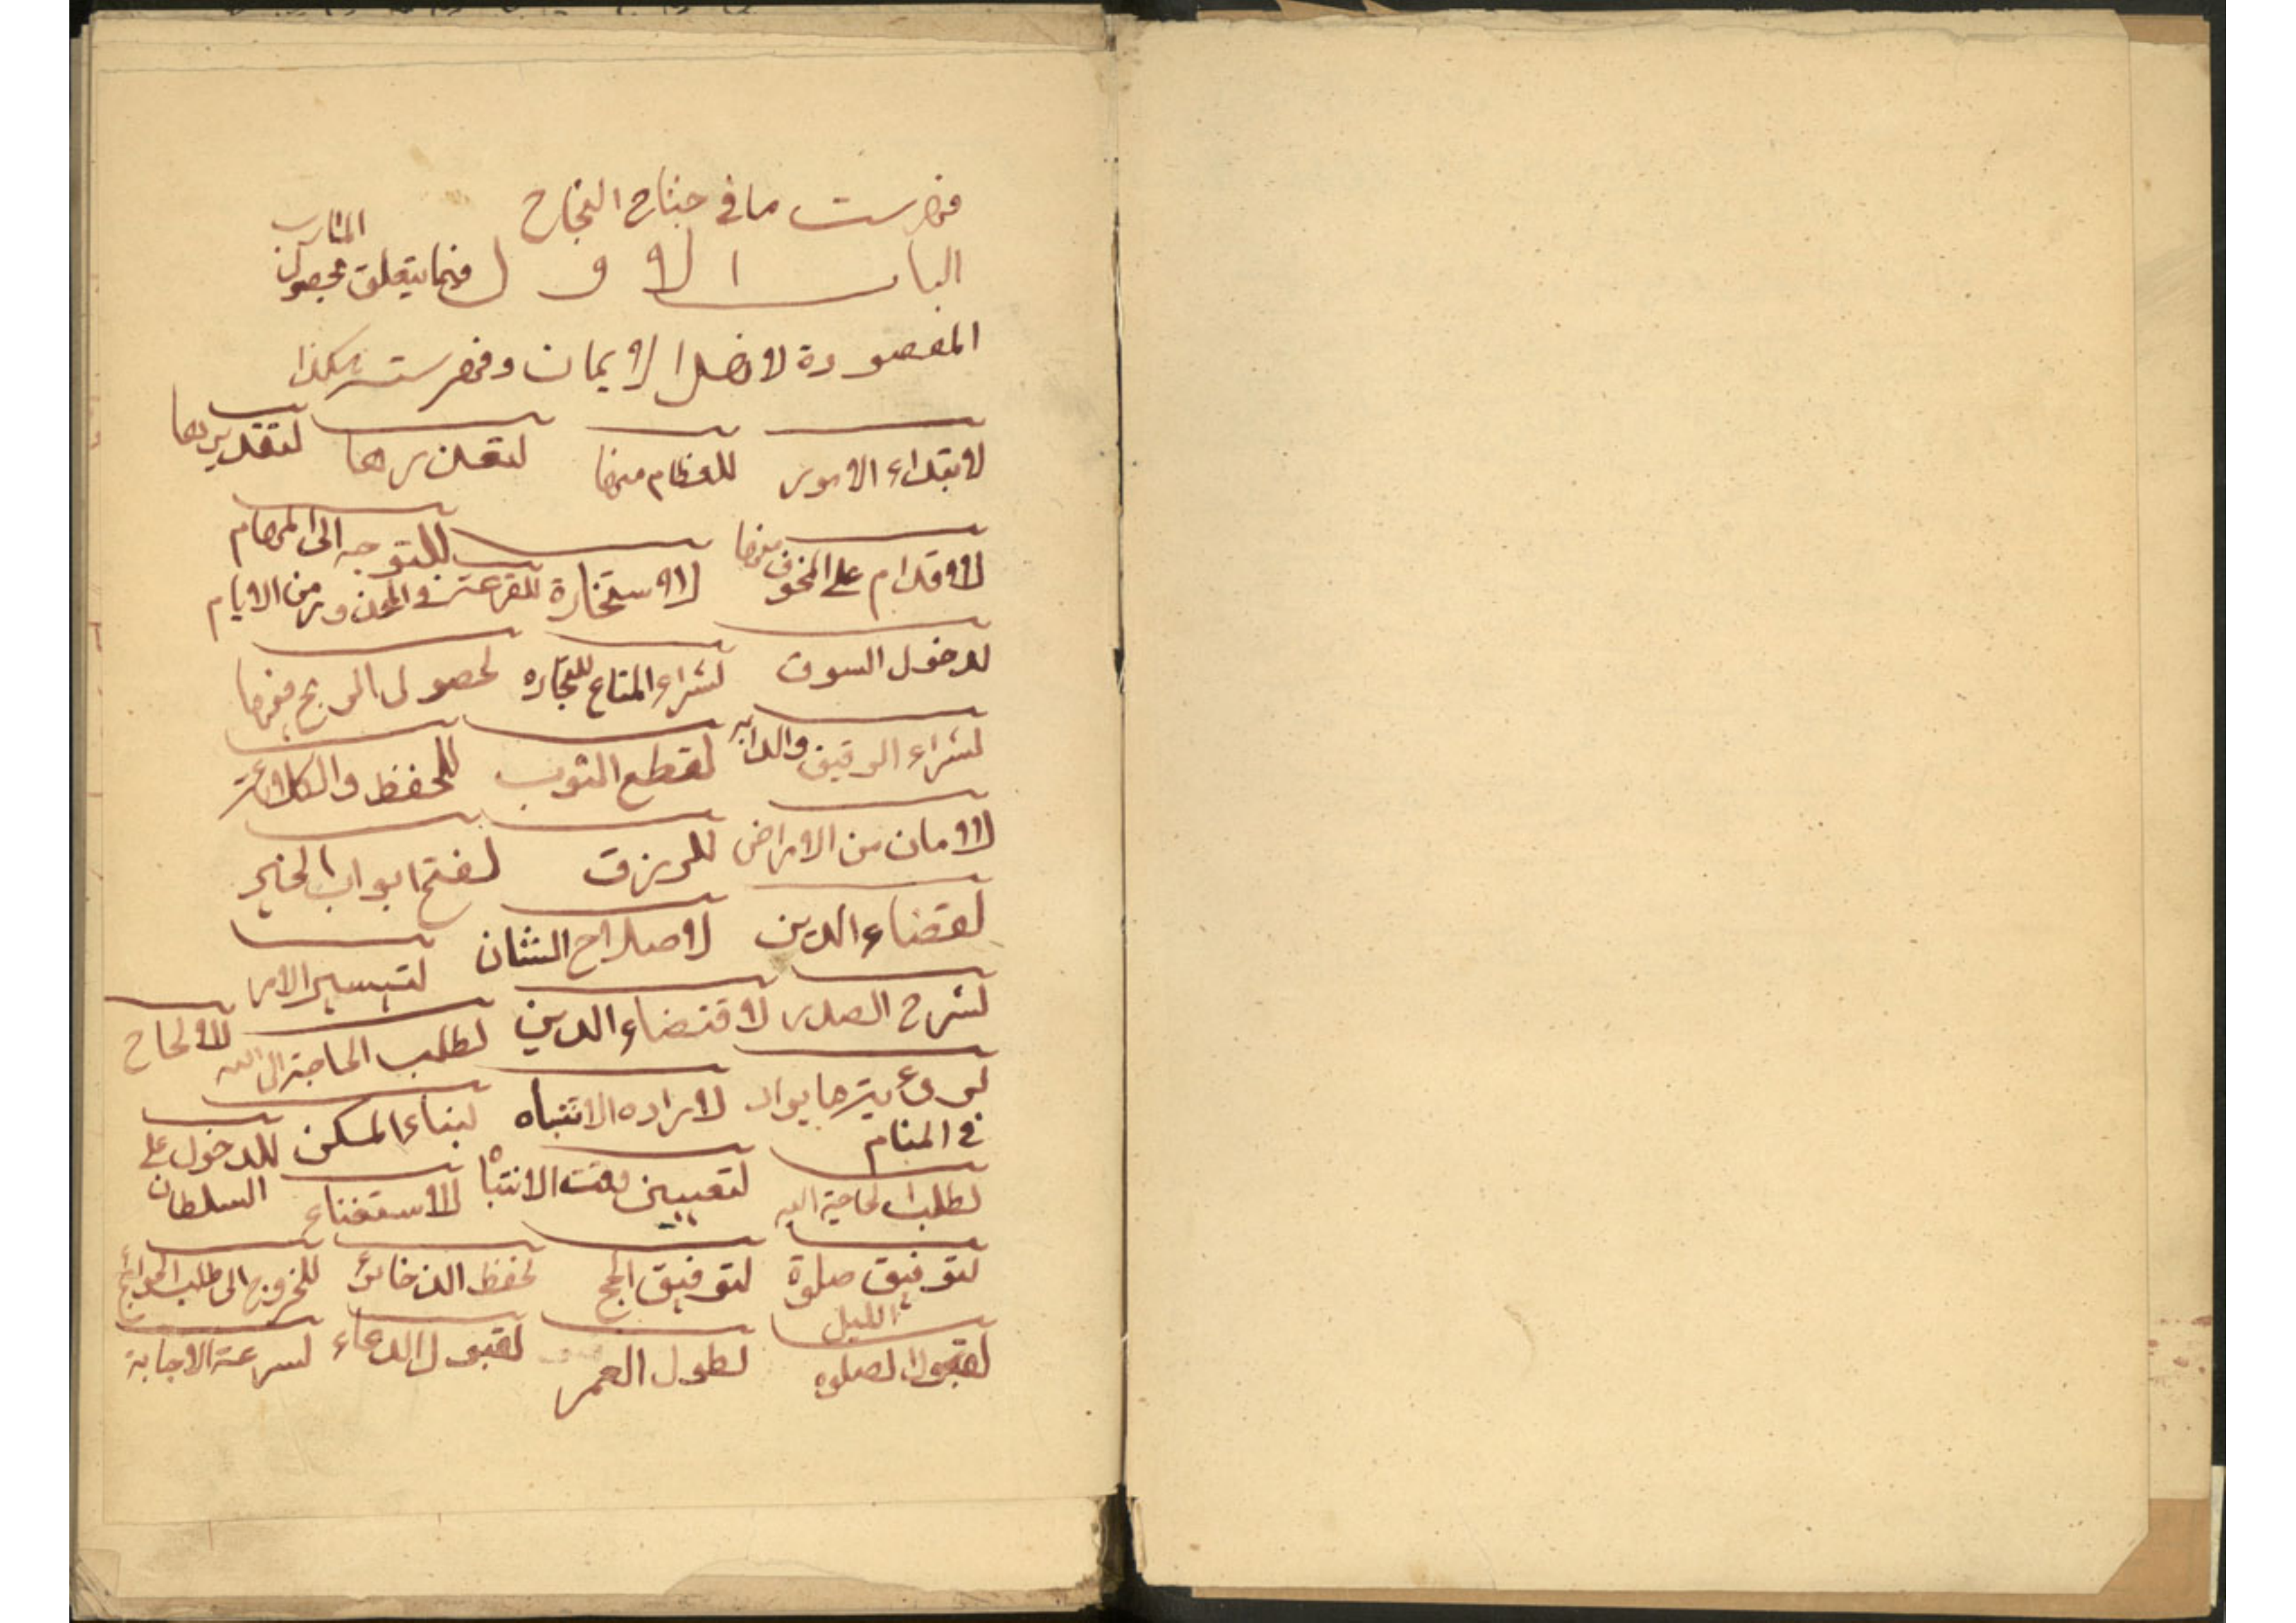 فهرست ما في جناح النجاح
الباب الاول فيما يتعلق بحصول المآرب
المقصودة لاهل الايمان وفهرسته هكذا
لابتداء الامور للعظام منها لتعذرها لتقديرها
للاقدام على المخوف منها للاستخارة للتوجه الى المهام
للقرعة في المحذور من الايام
لدخول السوق لشراء المتاع للتجاره لحصول الربح فيها
لشراء الرقيق والدابه لقطع الثوب للحفظ والكلاءة
للامان من الامراض للرزق لفتح ابواب الخير
لقضاء الدين لاصلاح الشان لتيسير الامر
لشرح الصدر لاقتضاء الدين لطلب الحاجة الى الله للالحاح
لرؤية ما يراد لاراده الانتباه لبناء المسكن للدخول على
في المنام
لطلب الحاجة اليه لتعيين وقت الانتباه للاستغناء السلطان
لتوفيق صلوة لتوفيق الحج لحفظ الذخائر للخروج الى طلب الحوائج
الليل
لقبول الصلوه لطول العمر لقبول الدعاء لسرعة الاجابة